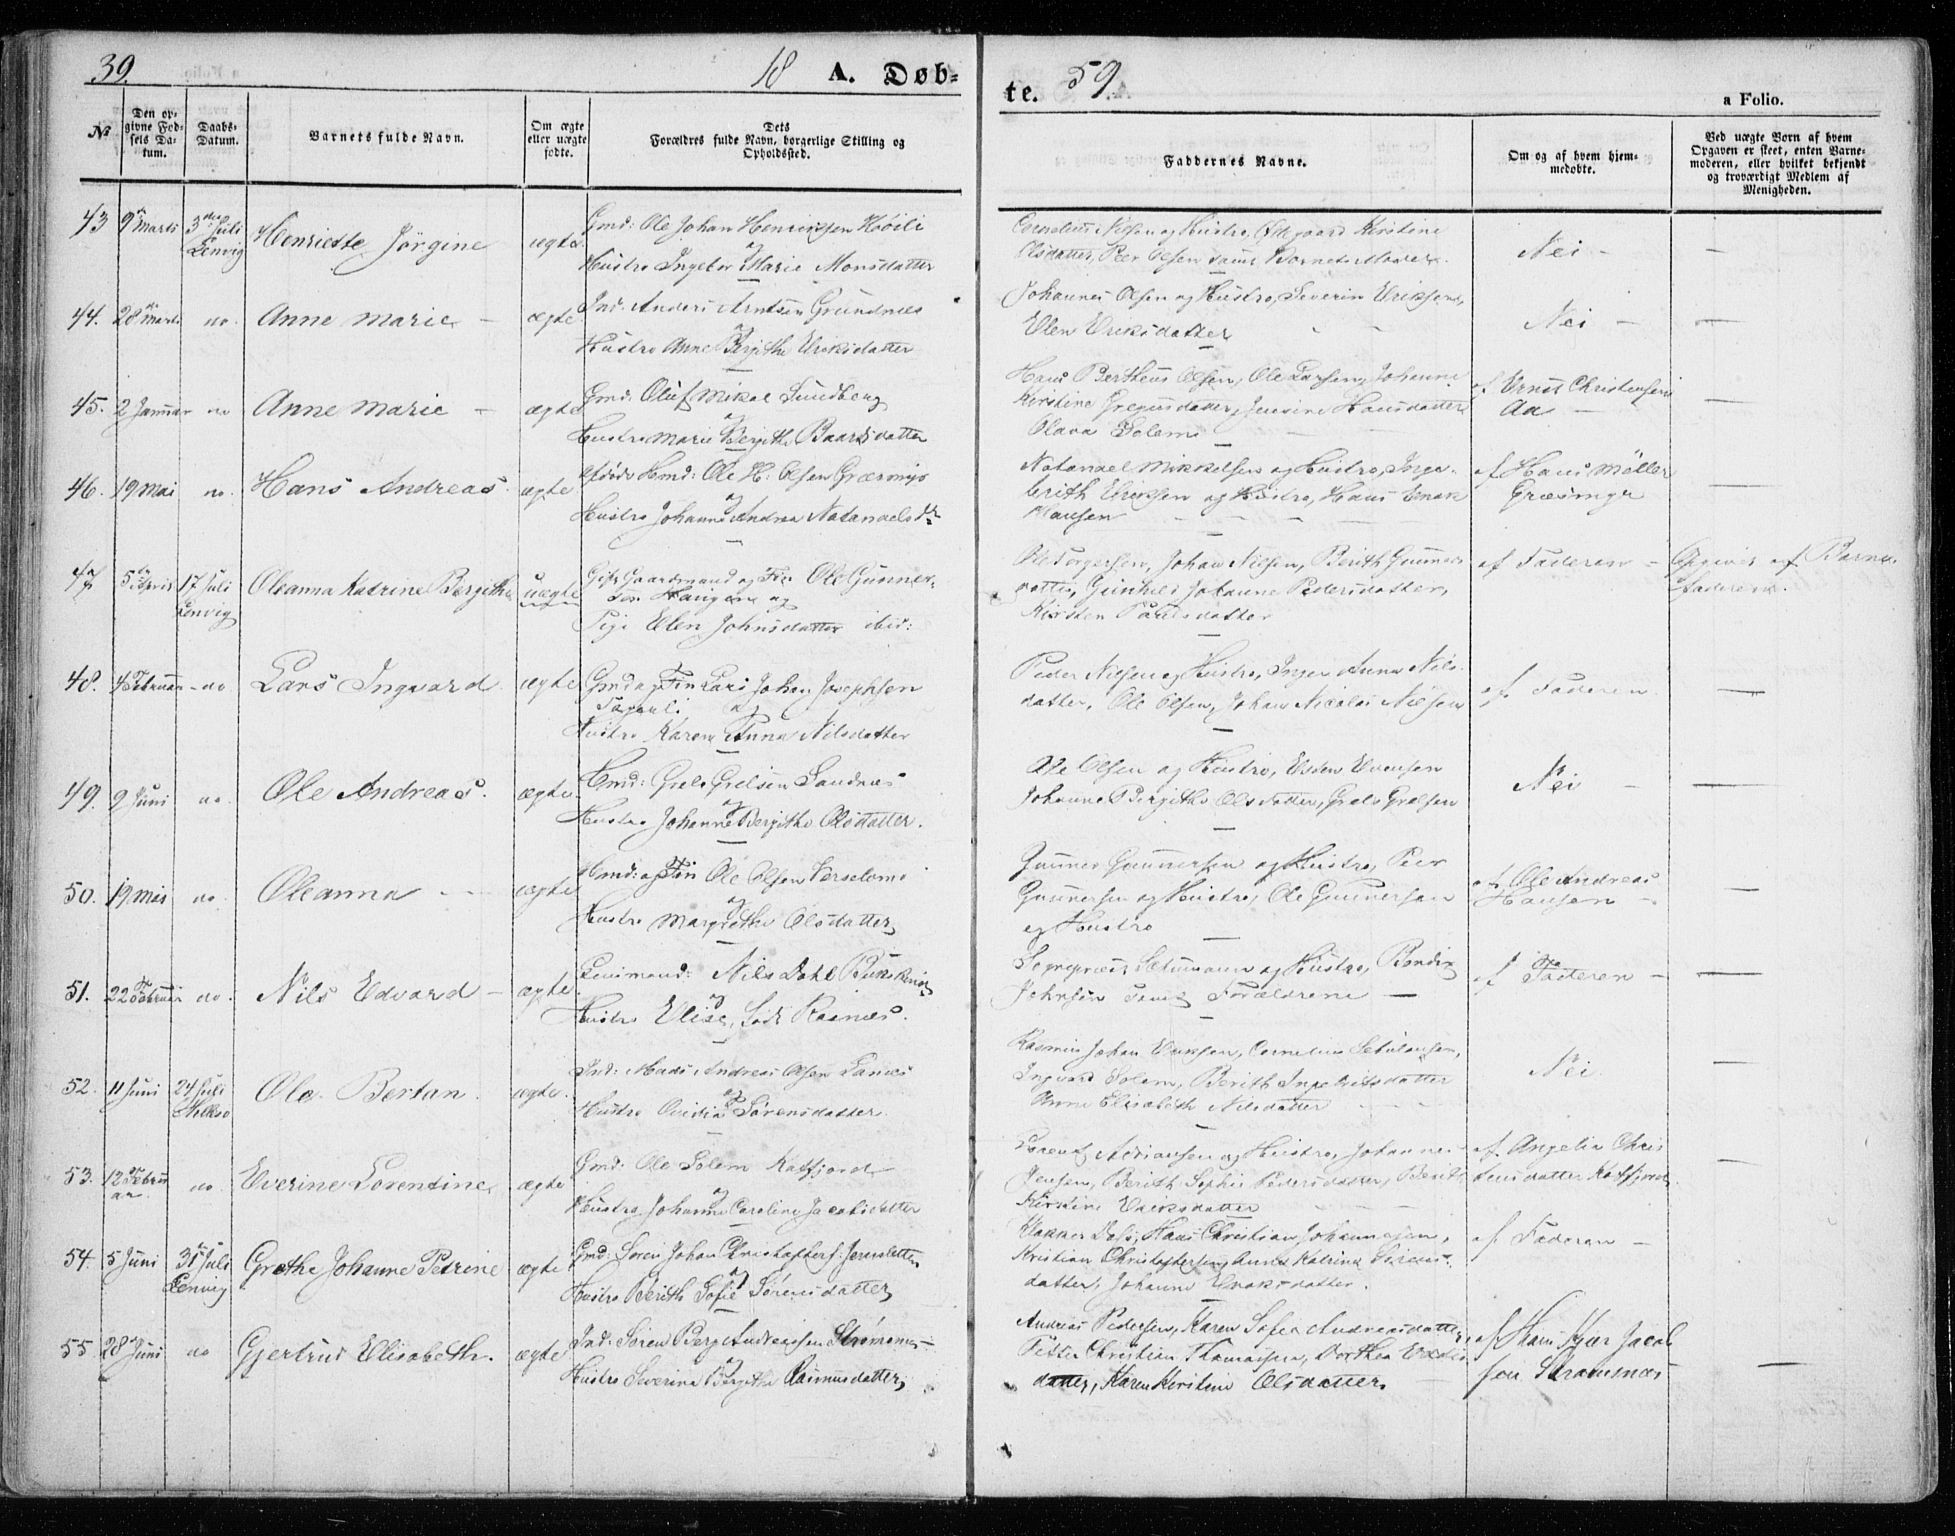 39.
18 A. Døb-
te. 59.
a Folio.
№
Den op-
givne Fød-
sels Da-
tum.
Daabs-
Datum.
Barnets fulde Navn.
Om ægte
eller uægte
fødte.
Dets
Forældres fulde Navn, borgerlige Stilling og
Opholdssted.
Faddernes Navne.
Om og af hvem hjem-
medøbte.
Ved uægte Børn af hvem
Opgaven er skeet, enten Barne-
moderen, eller hvilket bekjendt
og troværdigt Medlem af
Menigheden.
43 9de Marts 3die Juli
Lenvig
Henriette Jörgine ægte
Gmd: Ole Johan Henriksen Höili
og
Hustro Ingebor Marie Monsdatter
Cornelius Nilsen og Hustro, Kirstine
Olsdatter, Peer Olsen samt Barnets Moder.
Nei -
44. 28de Marts do. Anne Marie - ægte
Ind: Anders Arntsen Grundnæs
og
Hustro Anne Bergithe Eriksdatter
Johannes Olsen og Hustro, Severin Eriksen,
Elen Eriksdatter
Nei -
45. 2 Januar do Anne Marie - ægte
Gmd: Oluf Mikal Lundberg
og
Hustro Marie Bergithe Baardsdatter
Hans Bertheus Olsen, Ole Larsen, Johanna
Kirstine Gregusdatter, Jensine Hansdatter
Olava Solem
af Ernst Christensen
Aa -
46. 19 Mai do. Hans Andreas. ægte
afdöde Hmd: Ole H: Olsen Græsmyr
og
Hustro Johanna Andrea Natanaelsdr
Natanael Mikkelsen og Hustro, Inge-
brith Eriksen og Hustro, Hans Enok
Hansen
af Hans Möller
Græsmyr
47 5te April 17 Juli
Lenvig
Oleanna Katrine Bergithe uægte
Gift Gaardmand og Fin Ole Gunner-
sen Haugen og
Pige Elen Johnsdatter ibid:
Ole Torgersen, Johan Nilsen, Berith Gunners-
datter, Gunhild Johanne Pedersdatter,
Kirsten Paulsdatter
af Faderen - Opgivet af Barne-
faderen.
48. 4 Februar - do Lars Ingvard ægte
Gmd og Fin Lars Johan Josephsen
og
Hustro Karen Anna Nilsdatter
Peder Nilsen og Hustro, Inger Anna Nils-
datter, Ole Olsen, Johan Nicolai Nilsen
af Faderen
49. 9 Juni do. Ole Andreas. ægte
Gmd: Grels Grelsen Sandnæs
og
Hustro Johanne Bergithe Olsdatter.
Ole Olsen og Hustro, Esten Evensen
Johanne Bergithe Olsdatter, Grels Grelsen
Nei -
50. 19 Mai do. Oleanna - ægte
Hmd: og Fin Ole Olsen
og
Hustro Margrethe Olsdatter
Gunner Gunnersen og Hustro, Peer
Gunnersen og Hustro, Ole Gunnersen
og Hustro
af Ole Andreas
Hansen -
51. 22 Februar do. Nils Edvard - ægte
Nils Dahl
og
Hustro Elise, född Rasnæs.
Sogneprest og Hustro,
Johnsen samt Forældrene -
af Faderen -
52. 11 Juni 24 Juli
Ole Bertan. ægte.
Ind: Mads Andreas Olsen Lanæs
og
Hustro Ovidia Sörensdatter
Rasmus Johan Eriksen, Cornelius
Ingvard Solem, Berith Ingebritsdatter
Anne Elisabeth Nilsdatter
Nei.
53. 12 Febru-
ar do Everine Lorentine, ægte
Gmd: Ole Solem Katfjord
og
Hustro Johanna Caroline Jacobsdatter
Adriansen og Hustro, Johannes
Jensen, Berith Sophie Pedersdatter, Berith
Kirstine Eriksdatter
af Angelia Chris
tensdatter Katfjord.
54. 5 Juni 31te Juli
Lenvig
Grethe Johanne Petrine ægte
Gmd: Sören Johan Christophers: Jernsletten
og
Hustro Berith Sofie Sörensdatter
Hans Christian Johannesen,
Kristian Christophersen, Anna Katrina
datter, Johanna Enoksdatter.
af Faderen -
55 28 Juni do Gjertrud Elisabeth. ægte
Ind: Sören Berg Andreassen Strömsnes
og
Hustro Severina Bergithe Rasmusdatter,
Andreas Pedersen, Karen Sofia Andreasdatter
Petter Christian Thomassen, Dorthea
datter, Karen Kirstine Olsdatter.
af Hans Kjer Jacob
sen Strömsnæs